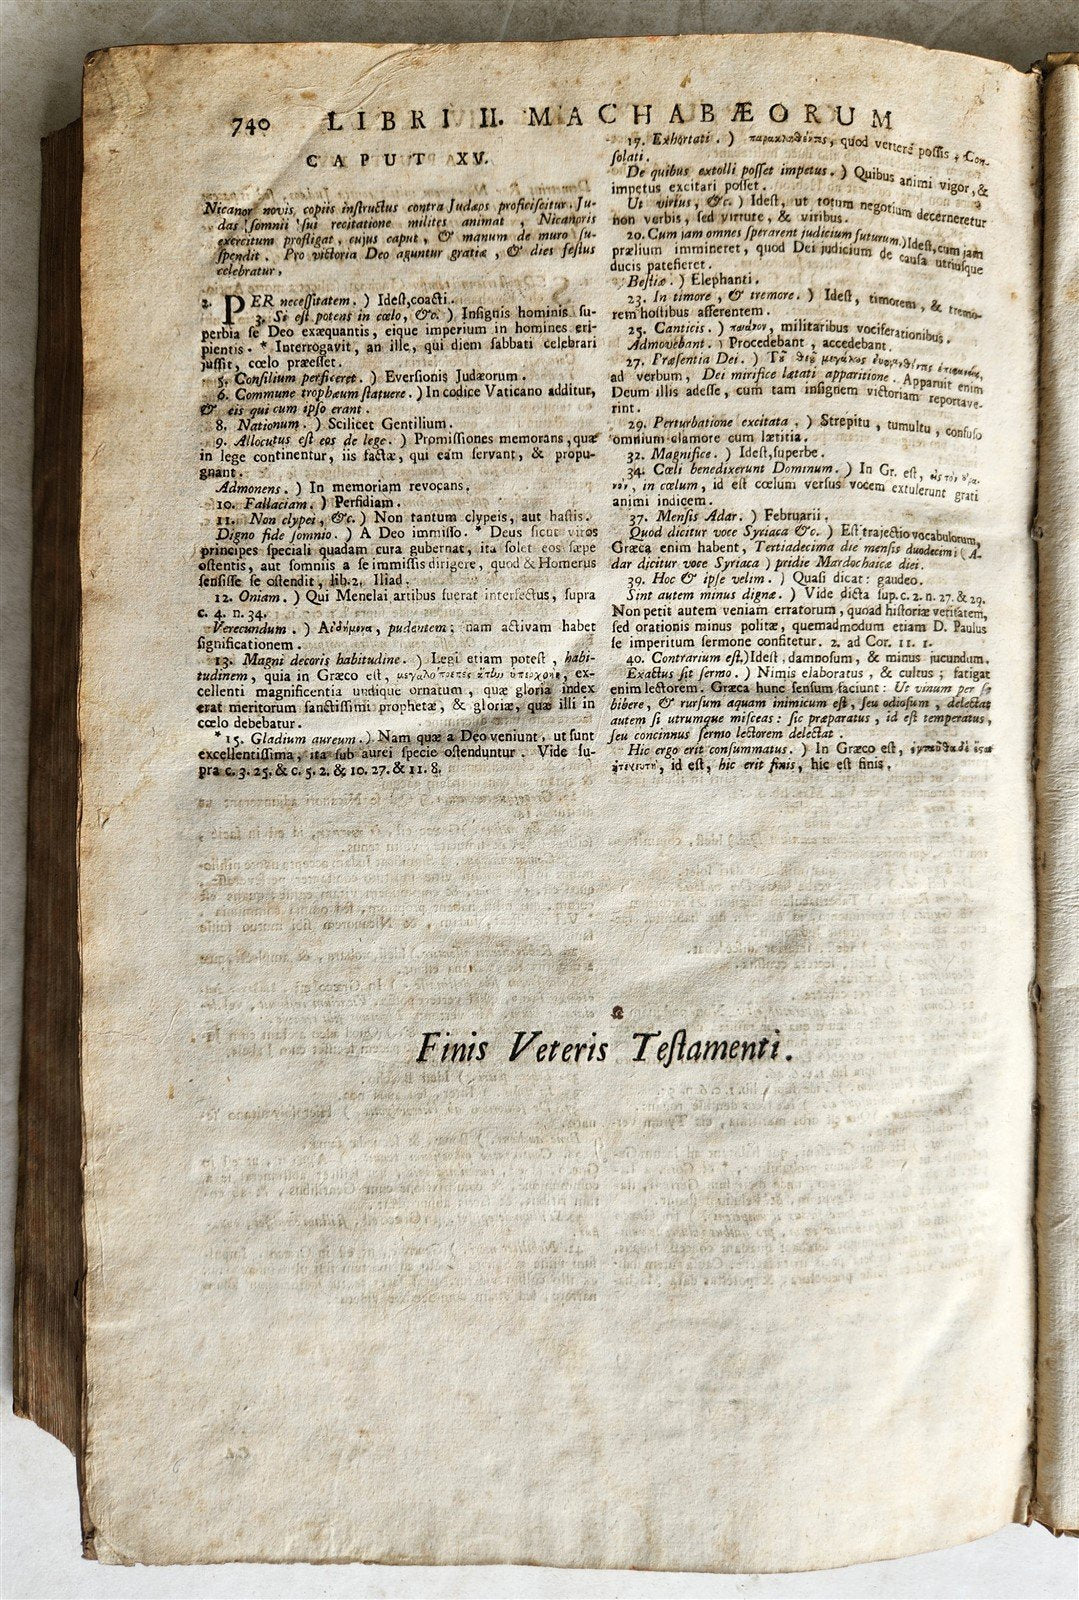 740 LIBRI II. MACHABÆORUM
CAPUT XV.
Nicanor novis copiis instructus contra Judæos proficiscitur. Ju-
das somnii sui recitatione milites animat, Nicanoris
exercitum profligat, cujus caput, & manum de muro su-
spendit. Pro victoria Deo aguntur gratiæ, & dies festus
celebratur.
2. PER necessitatem. ) Idest, coacti.
3. Si est potens in cœlo, &c. ) Insignis hominis su-
perbia se Deo exæquantis, eique imperium in homines eri-
pientis. * Interrogavit, an ille, qui diem sabbati celebrari
jussit, cœlo præesset.
5. Consilium perficeret. ) Eversionis Judæorum.
6. Commune trophæum statuere. ) In codice Vaticano additur,
& eis qui cum ipso erant.
8. Nationum. ) Scilicet Gentilium.
9. Allocutus est eos de lege. ) Promissiones memorans, quæ
in lege continentur, iis factæ, qui eam servant, & propu-
gnant.
Admonens. ) In memoriam revocans.
10. Fallaciam. ) Perfidiam.
11. Non clypei, &c. ) Non tantum clypeis, aut hastis.
Digno fide somnio. ) A Deo immisso. * Deus sicut viros
principes speciali quadam cura gubernat, ita solet eos sæpe
ostentis, aut somniis a se immissis dirigere, quod & Homerus
sensisse se ostendit, lib. 2. Iliad.
12. Oniam. ) Qui Menelai artibus fuerat interfectus, supra
c. 4. n. 34.
Verecundum. ) Αἰδήμονα, pudentem; nam activam habet
significationem.
13. Magni decoris habitudine. ) Legi etiam potest, habi-
tudinem, quia in Græco est, ex-
cellenti magnificentia undique ornatum, quæ gloria index
erat meritorum sanctissimi prophetæ, & gloriæ, quæ illi in
cœlo debebatur.
* 15. Gladium aureum. ) Nam quæ a Deo veniunt, ut sunt
excellentissima, ita sub aurei specie ostenduntur. Vide su-
pra c. 3. 25. & c. 5. 2. & 10. 27. & 11. 8.
17. Exhortati. ) παρακληθέντες, quod vertere possis, Con-
solati.
De quibus extolli posset impetus. ) Quibus animi vigor, &
impetus excitari posset.
Ut virtus, &c. ) Idest, ut totum negotium decerneretur
non verbis, sed virtute, & viribus.
20. Cum jam omnes sperarent judicium futurum. ) Idest, cum jam
prælium immineret, quod Dei judicium de causa utriusque
ducis patefieret.
Bestiæ. ) Elephanti.
23. In timore, & tremore. ) Idest, timorem, & tremo-
rem hostibus afferentem.
25. Canticis. ) παιάνων, militaribus vociferationibus.
Admovebant. ) Procedebant, accedebant.
27. Præsentia Dei. ) Τῇ τοῦ θεοῦ μεγάλως εὐφρανθέντες ἐπιφανείᾳ,
ad verbum, Dei mirifice lætati apparitione. Apparuit enim
Deum illis adesse, cum tam insignem victoriam reportave-
rint.
29. Perturbatione excitata. ) Strepitu, tumultu, confuso
omnium clamore cum lætitia.
32. Magnifice. ) Idest, superbe.
34. Cœli benedixerunt Dominum. ) In Gr. est, εἰς τὸν οὐρα-
νόν, in cœlum, id est cœlum versus vocem extulerunt grati
animi indicem.
37. Mensis Adar. ) Februarii.
Quod dicitur voce Syriaca &c. ) Est trajectio vocabulorum,
Græca enim habent, Tertiadecima die mensis duodecimi ( A-
dar dicitur voce Syriaca ) pridie Mardochaicæ diei.
39. Hoc & ipse velim. ) Quasi dicat: gaudeo.
Sint autem minus digna. ) Vide dicta sup. c. 2. n. 27. & 29.
Non petit autem veniam erratorum, quoad historiæ veritatem,
sed orationis minus politæ, quemadmodum etiam D. Paulus
se imperitum sermone confitetur. 2. ad Cor. 11. 1.
40. Contrarium est. ) Idest, damnosum, & minus jucundum.
Exactus sit sermo. ) Nimis elaboratus, & cultus; fatigat
enim lectorem. Græca hunc sensum faciunt: Ut vinum per se
bibere, & rursum aquam inimicum est, seu odiosum, delectat
autem si utrumque misceas: sic præparatus, id est temperatus,
seu concinnus sermo lectorem delectat.
Hic ergo erit consummatus. ) In Græco est,
id est, hic erit finis, hic est finis.
Finis Veteris Testamenti.